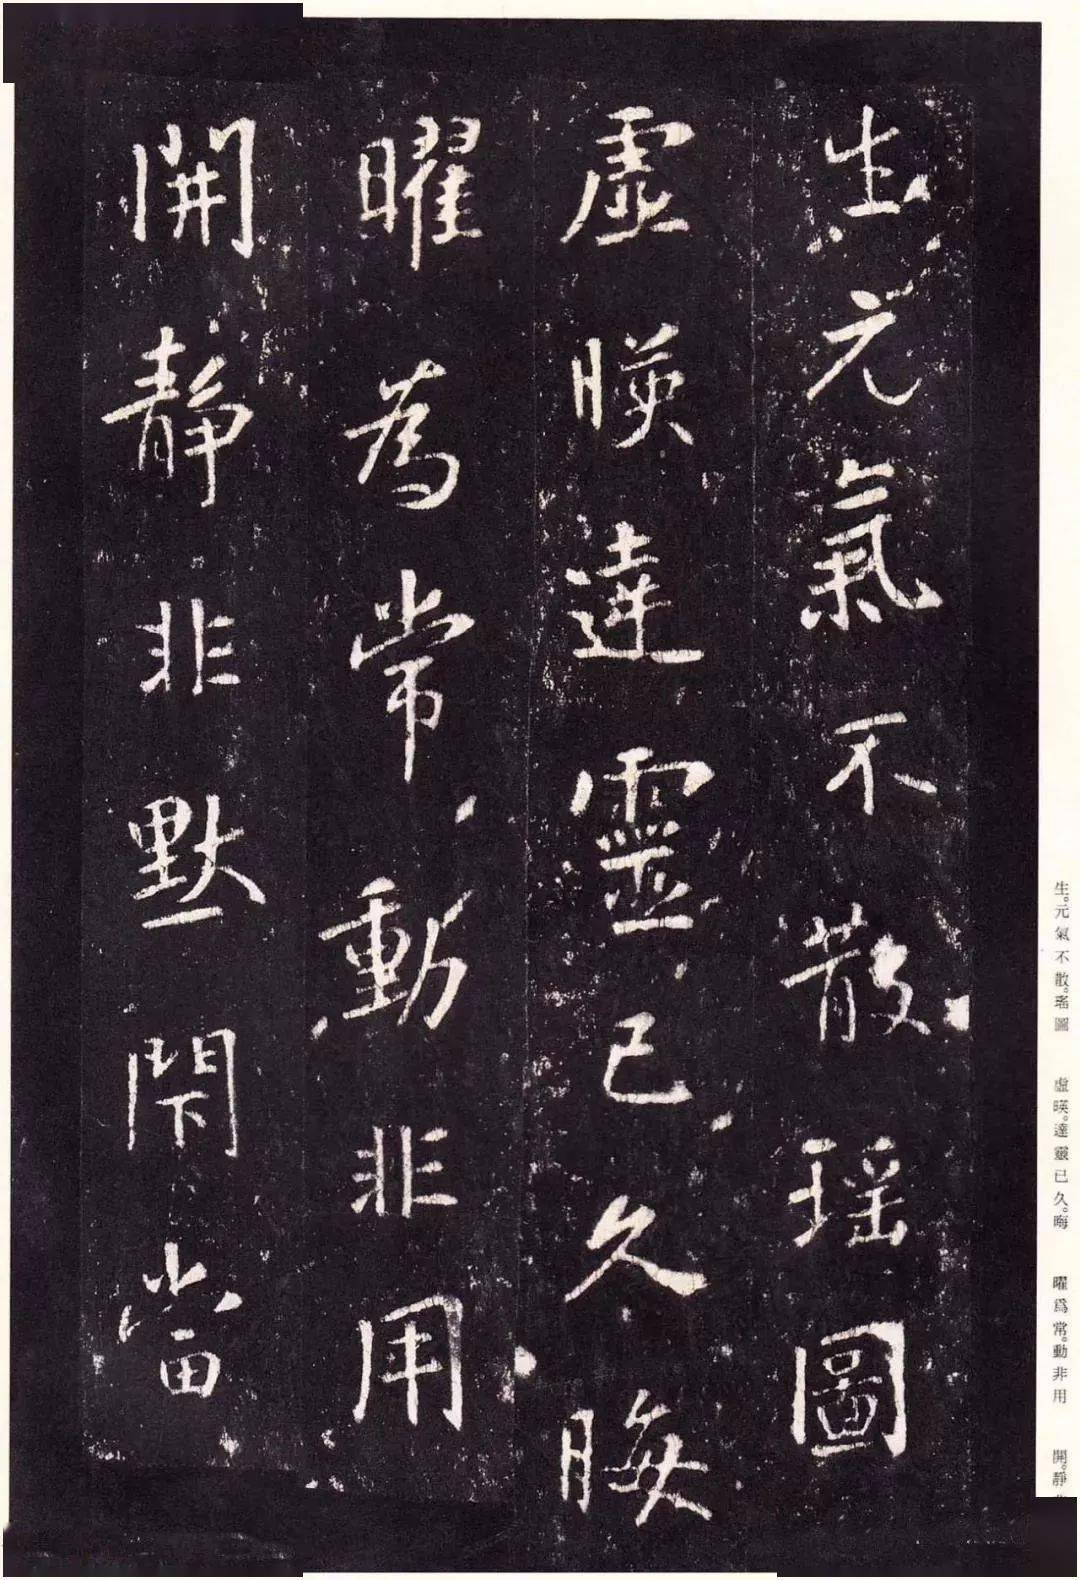 生元氣不散瑶圖
虛暎達靈已久晦
曜為常動非用
開靜非默閇當
生。元氣不散。瑤圖
虛暎。達靈已久。晦
曜爲常。動非用
開。靜